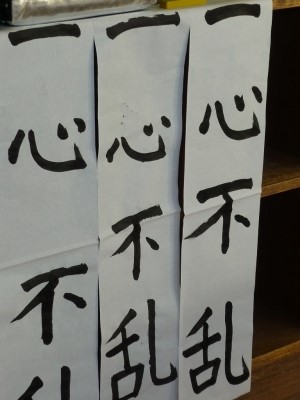 一心不乱
一心不乱
一心不乱